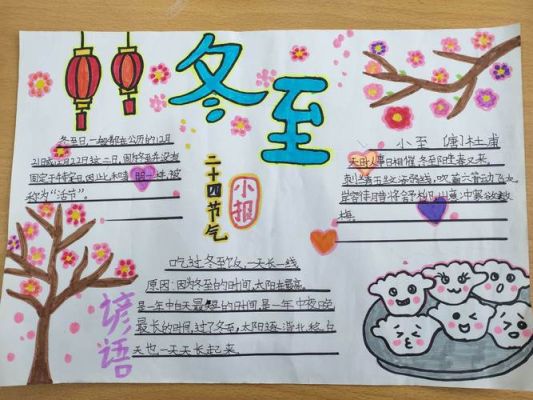 冬至
二十四节气
小报
冬至日,一般都在公历的12月
21日或22日这二日,因冬至并没有
固定于特定一日,因此和清明一样,被
称为“活节”。
小至 (唐)杜甫
天时人事日相催,冬至阳生春又来。
刺绣五纹添弱线,吹葭六管动飞灰。
岸容待腊将舒柳,山意冲寒欲放
梅。
谚语
吃过冬至饭,一天长一线
原因:因为冬至的时间,太阳在最南,
是一年中白天最短的时间,是一年中夜晚
最长的时间,过了冬至,太阳逐渐北移,白
天也一天天长起来.